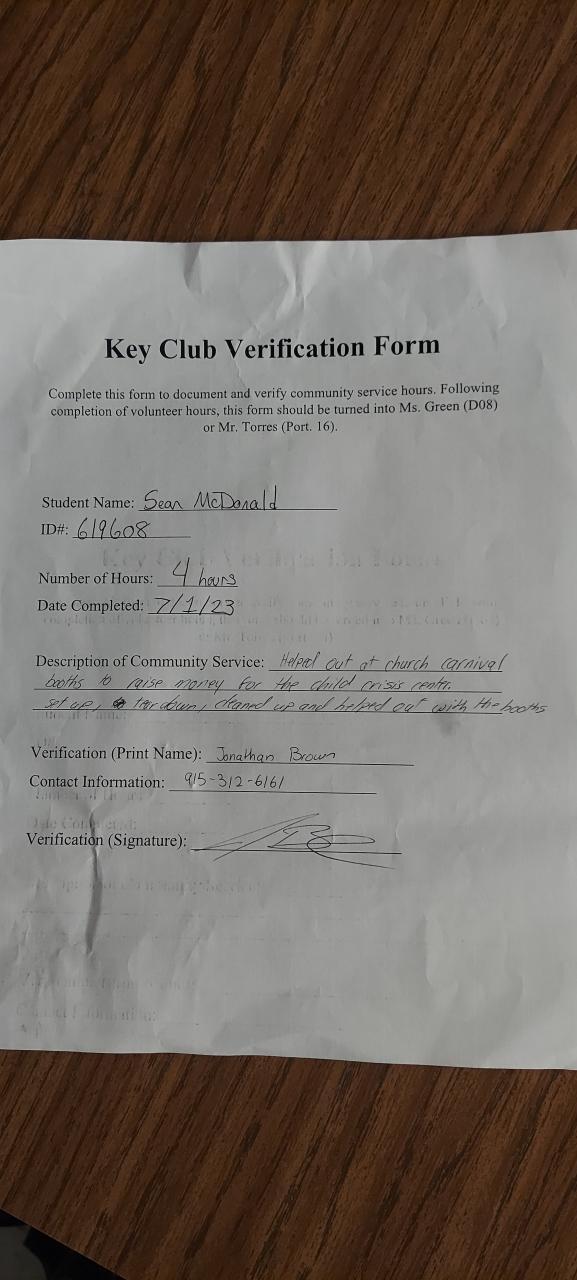 Key Club Verification Form
Complete this form to document and verify community service hours. Following
completion of volunteer hours, this form should be turned into Ms. Green (D08)
or Mr. Torres (Port. 16).
Student Name: Sean McDonald
ID#: 619608
Number of Hours: 4 hours
Date Completed: 7/1/23
Description of Community Service: Helped out at church carnival
booths to raise money for the child crisis center.
set up, tear down, cleaned up and helped out with the booths
Verification (Print Name): Jonathan Brown
Contact Information: 915-312-6161
Verification (Signature):